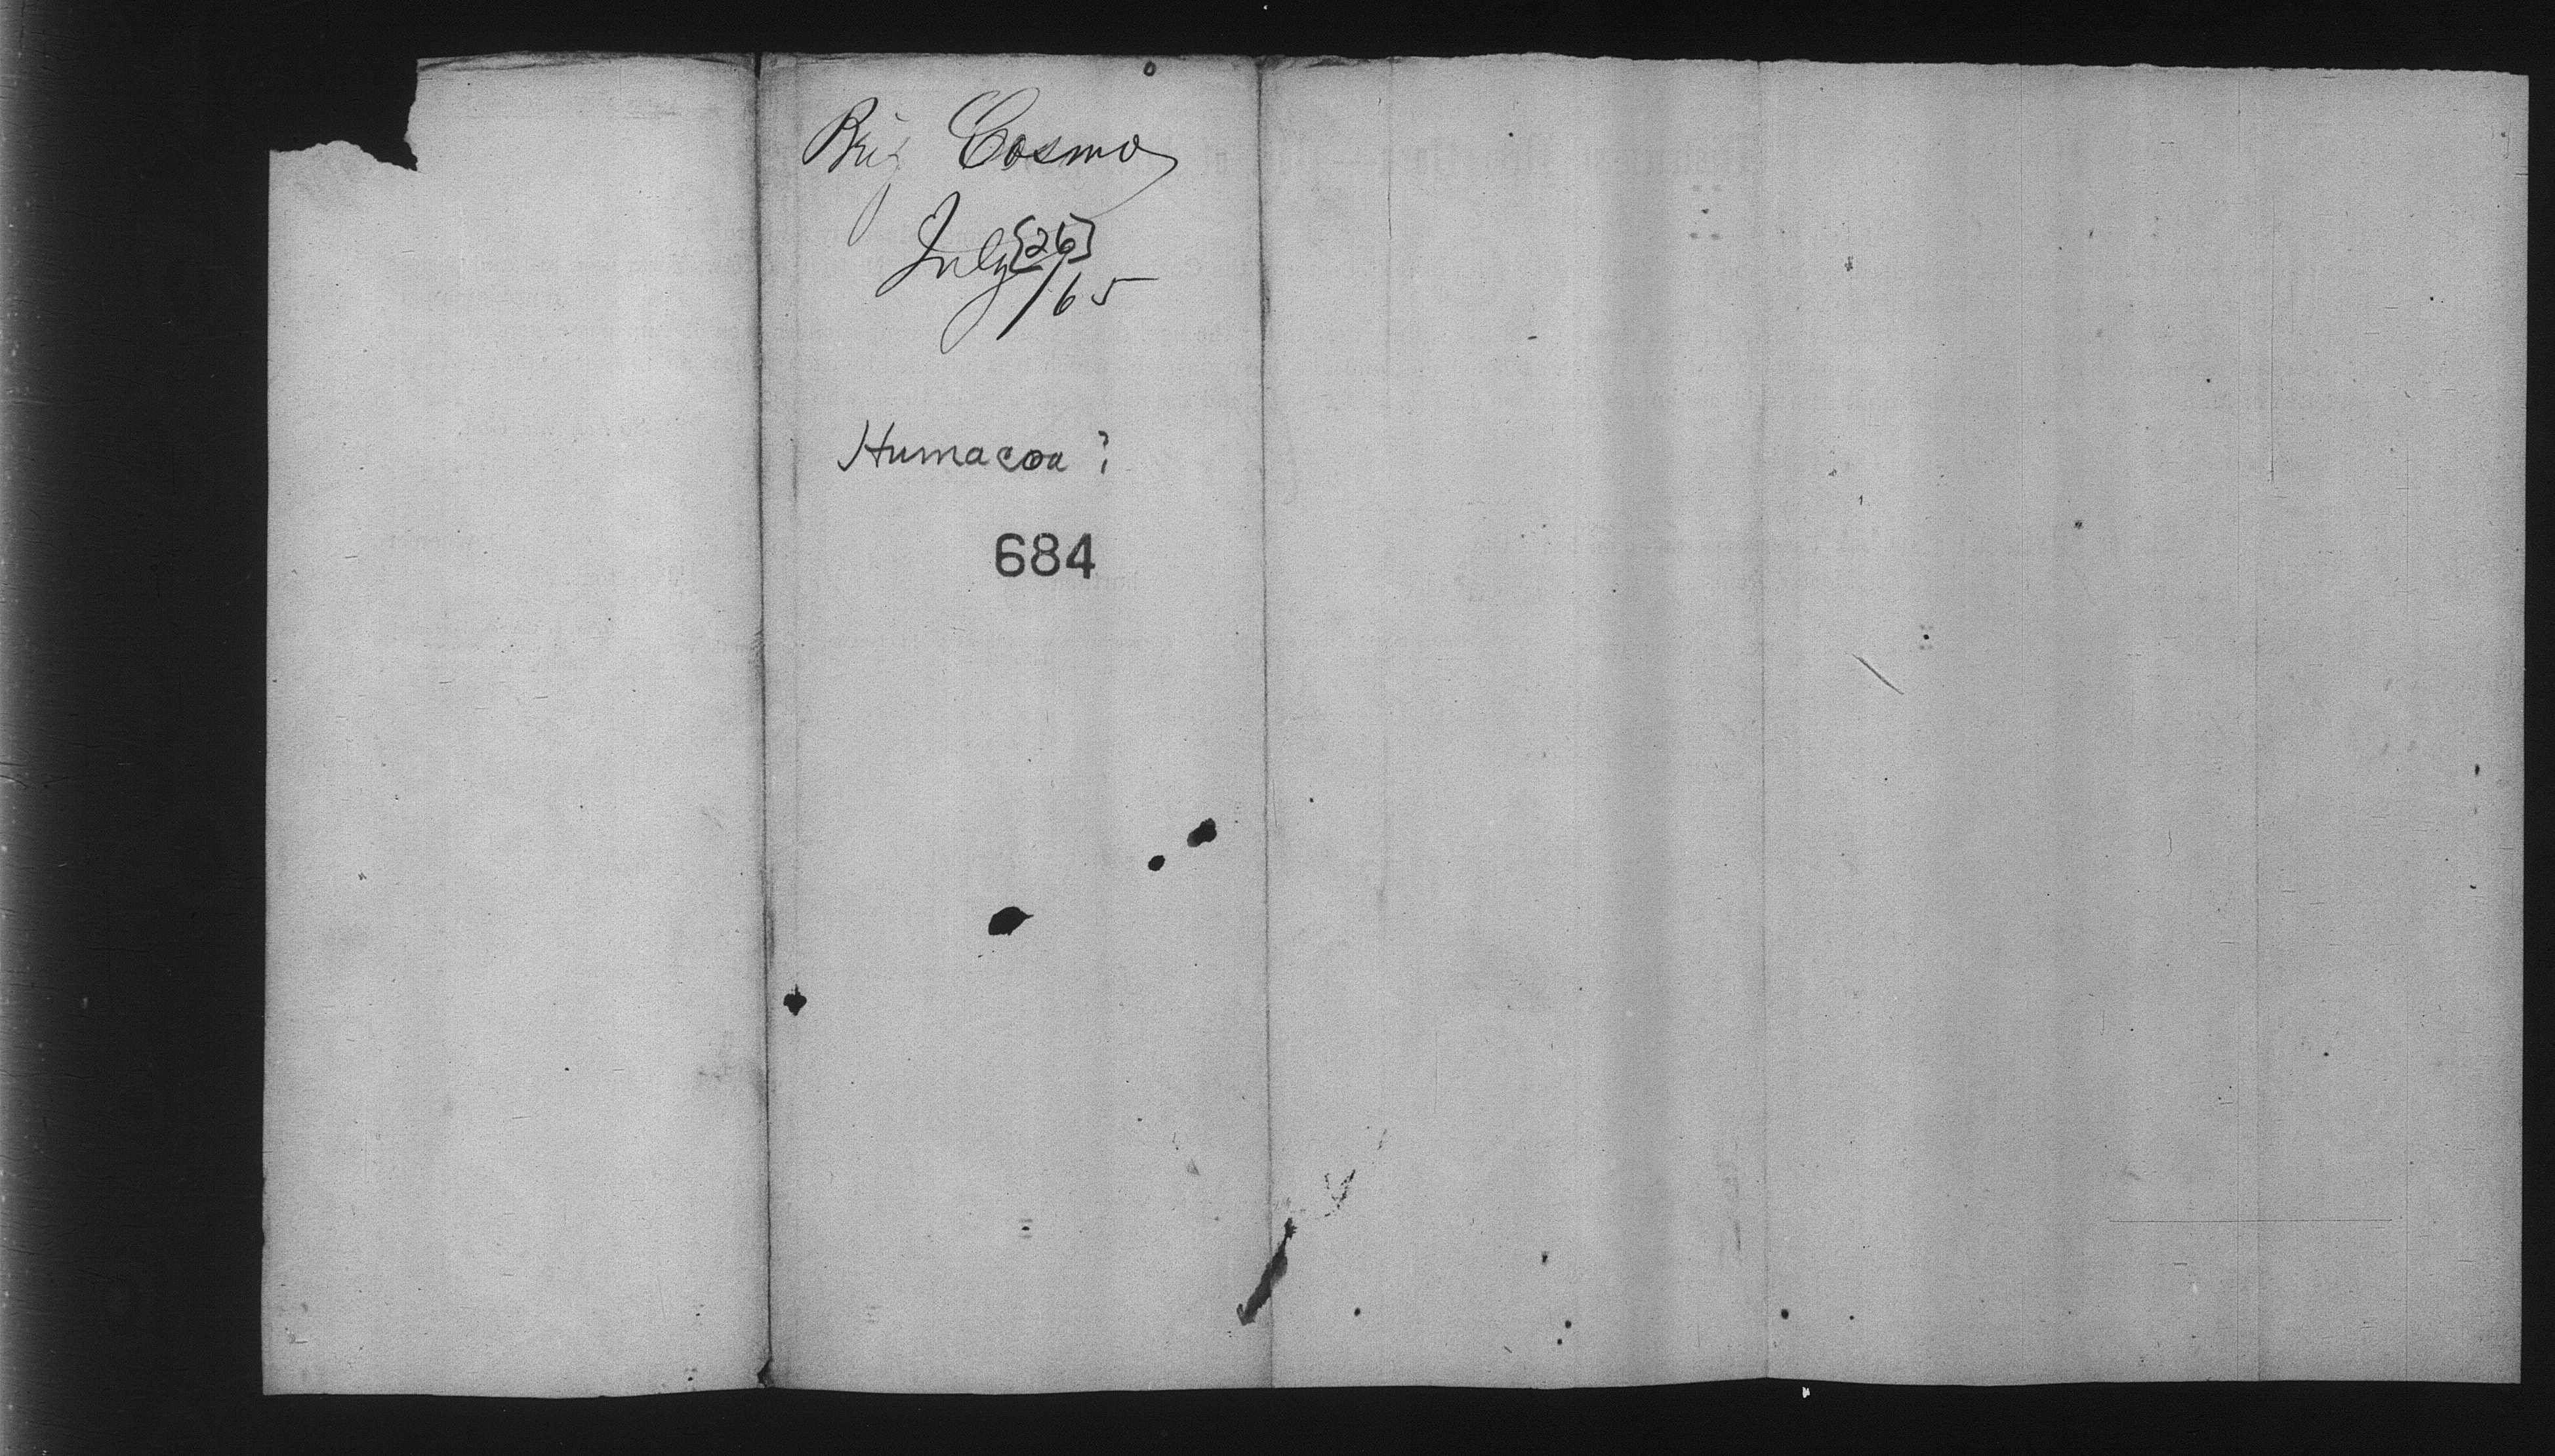 Brig Cosmo
July {26}
/65
Humacoa ?
684